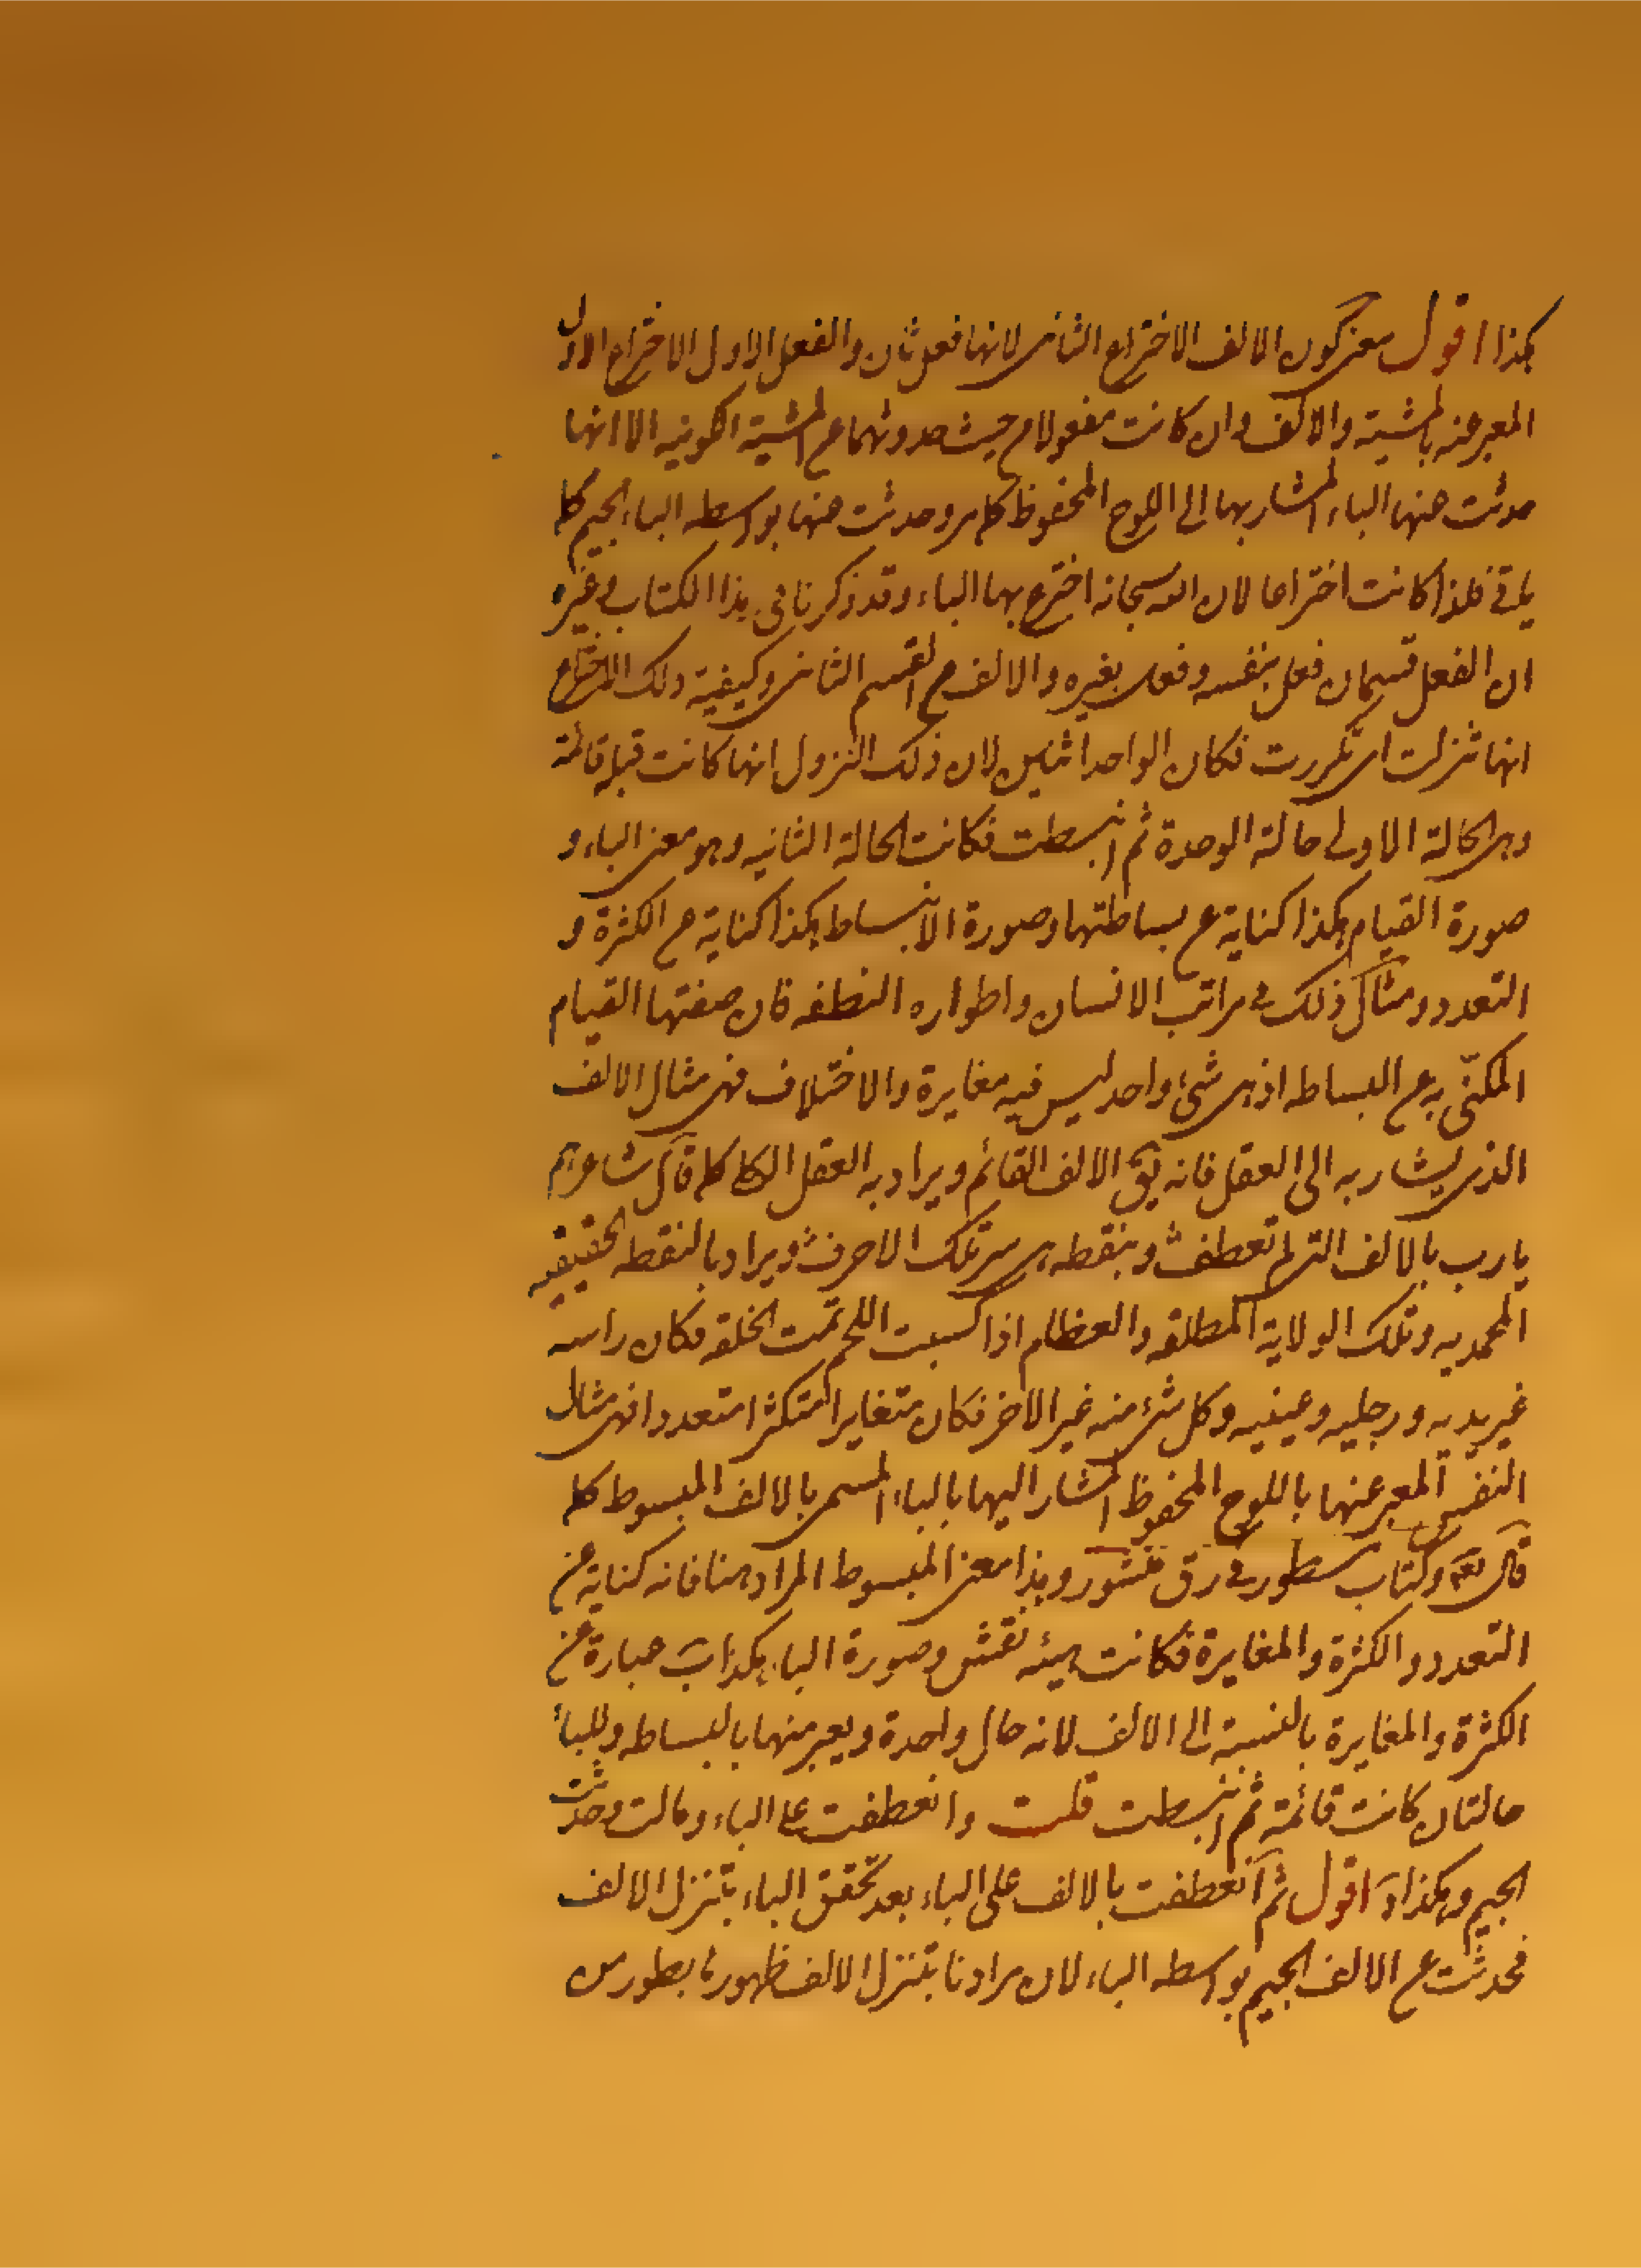 هكذا ا اقول معنى كون الالف الاختراع الثانى لانها فعل ثان والفعل الاول الاختراع الاول
المعبر عنه بالمشية والالف وان كانت مفعولا من حيث حدوثهما عن المشية الكونيه الا انها
حدثت عنها الباء المشار بها الى اللوح المحفوظ كلمر وحدثت عنها بواسطه الباء الجيم كما
ياتى فلذا كانت اختراعا لان الله سبحانه اخترع بها الباء وقد ذكرنا فى هذا الكتاب وغيره
ان الفعل قسمان فعل بنفسه وفعل بغيره والالف من القسم الثانى وكيفية ذلك الاختراع
انها تنزلت اى تكررت فكان الواحد اثنين لان ذلك النزول انها كانت قبله قائمة
وهى الحالة الاولى حالة الوحدة ثم انبسطت فكانت الحالة الثانيه وهو معنى الباء و
صورة القيام هكذا كناية عن بساطتها وصورة الانبساط هكذا كناية عن الكثرة و
التعدد ومثال ذلك فى مراتب الانسان واطواره النطفه فان صفتها القيام
المكنّى به عن البساطه اذ هى شئ واحد ليس فيه مغايرة والاختلاف فهى مثال الالف
الذى يشار به الى العقل فانه يق الالف القائم ويراد به العقل الكلى كما قال شاعرهم
يا رب بالالف التى لم تعطف وبنقطه هى سر تلك الاحرف ويراد بالنقطه الحقيقيه
المحمديه وتلك الولاية المطلقه والعظام اذا كسيت اللحم تمت الخلقه فكان راسه
غير يديه ورجليه وعينيه وكل شئ منه غير الاخر فكان متغايرا متكثرا متعددا فهى مثال
النفس المعبر عنها باللوح المحفوظ المشار اليها بالباء المسمى بالالف المبسوط كما
قال تعه وكتاب مسطور فى رق منشور وهذا معنى المبسوط المراد هنا فانه كناية عن
التعدد والكثرة والمغايرة فكانت هيئه نقش وصورة الباء هكذا ب عبارة عن
الكثرة والمغايرة بالنسبة الى الالف لانه حال واحدة ويعبر منها بالبساطه وللباء
حالتان كانت قائمة ثم انبسطت قلت وانعطفت على الباء ومالت وحدثت
الجيم وهكذا د اقول ثم انعطفت بالالف على الباء بعد تحقق الباء بتنزل الالف
فحدثت عن الالف الجيم بواسطه الباء لان مرادنا بتنزل الالف ظهورها بطورين